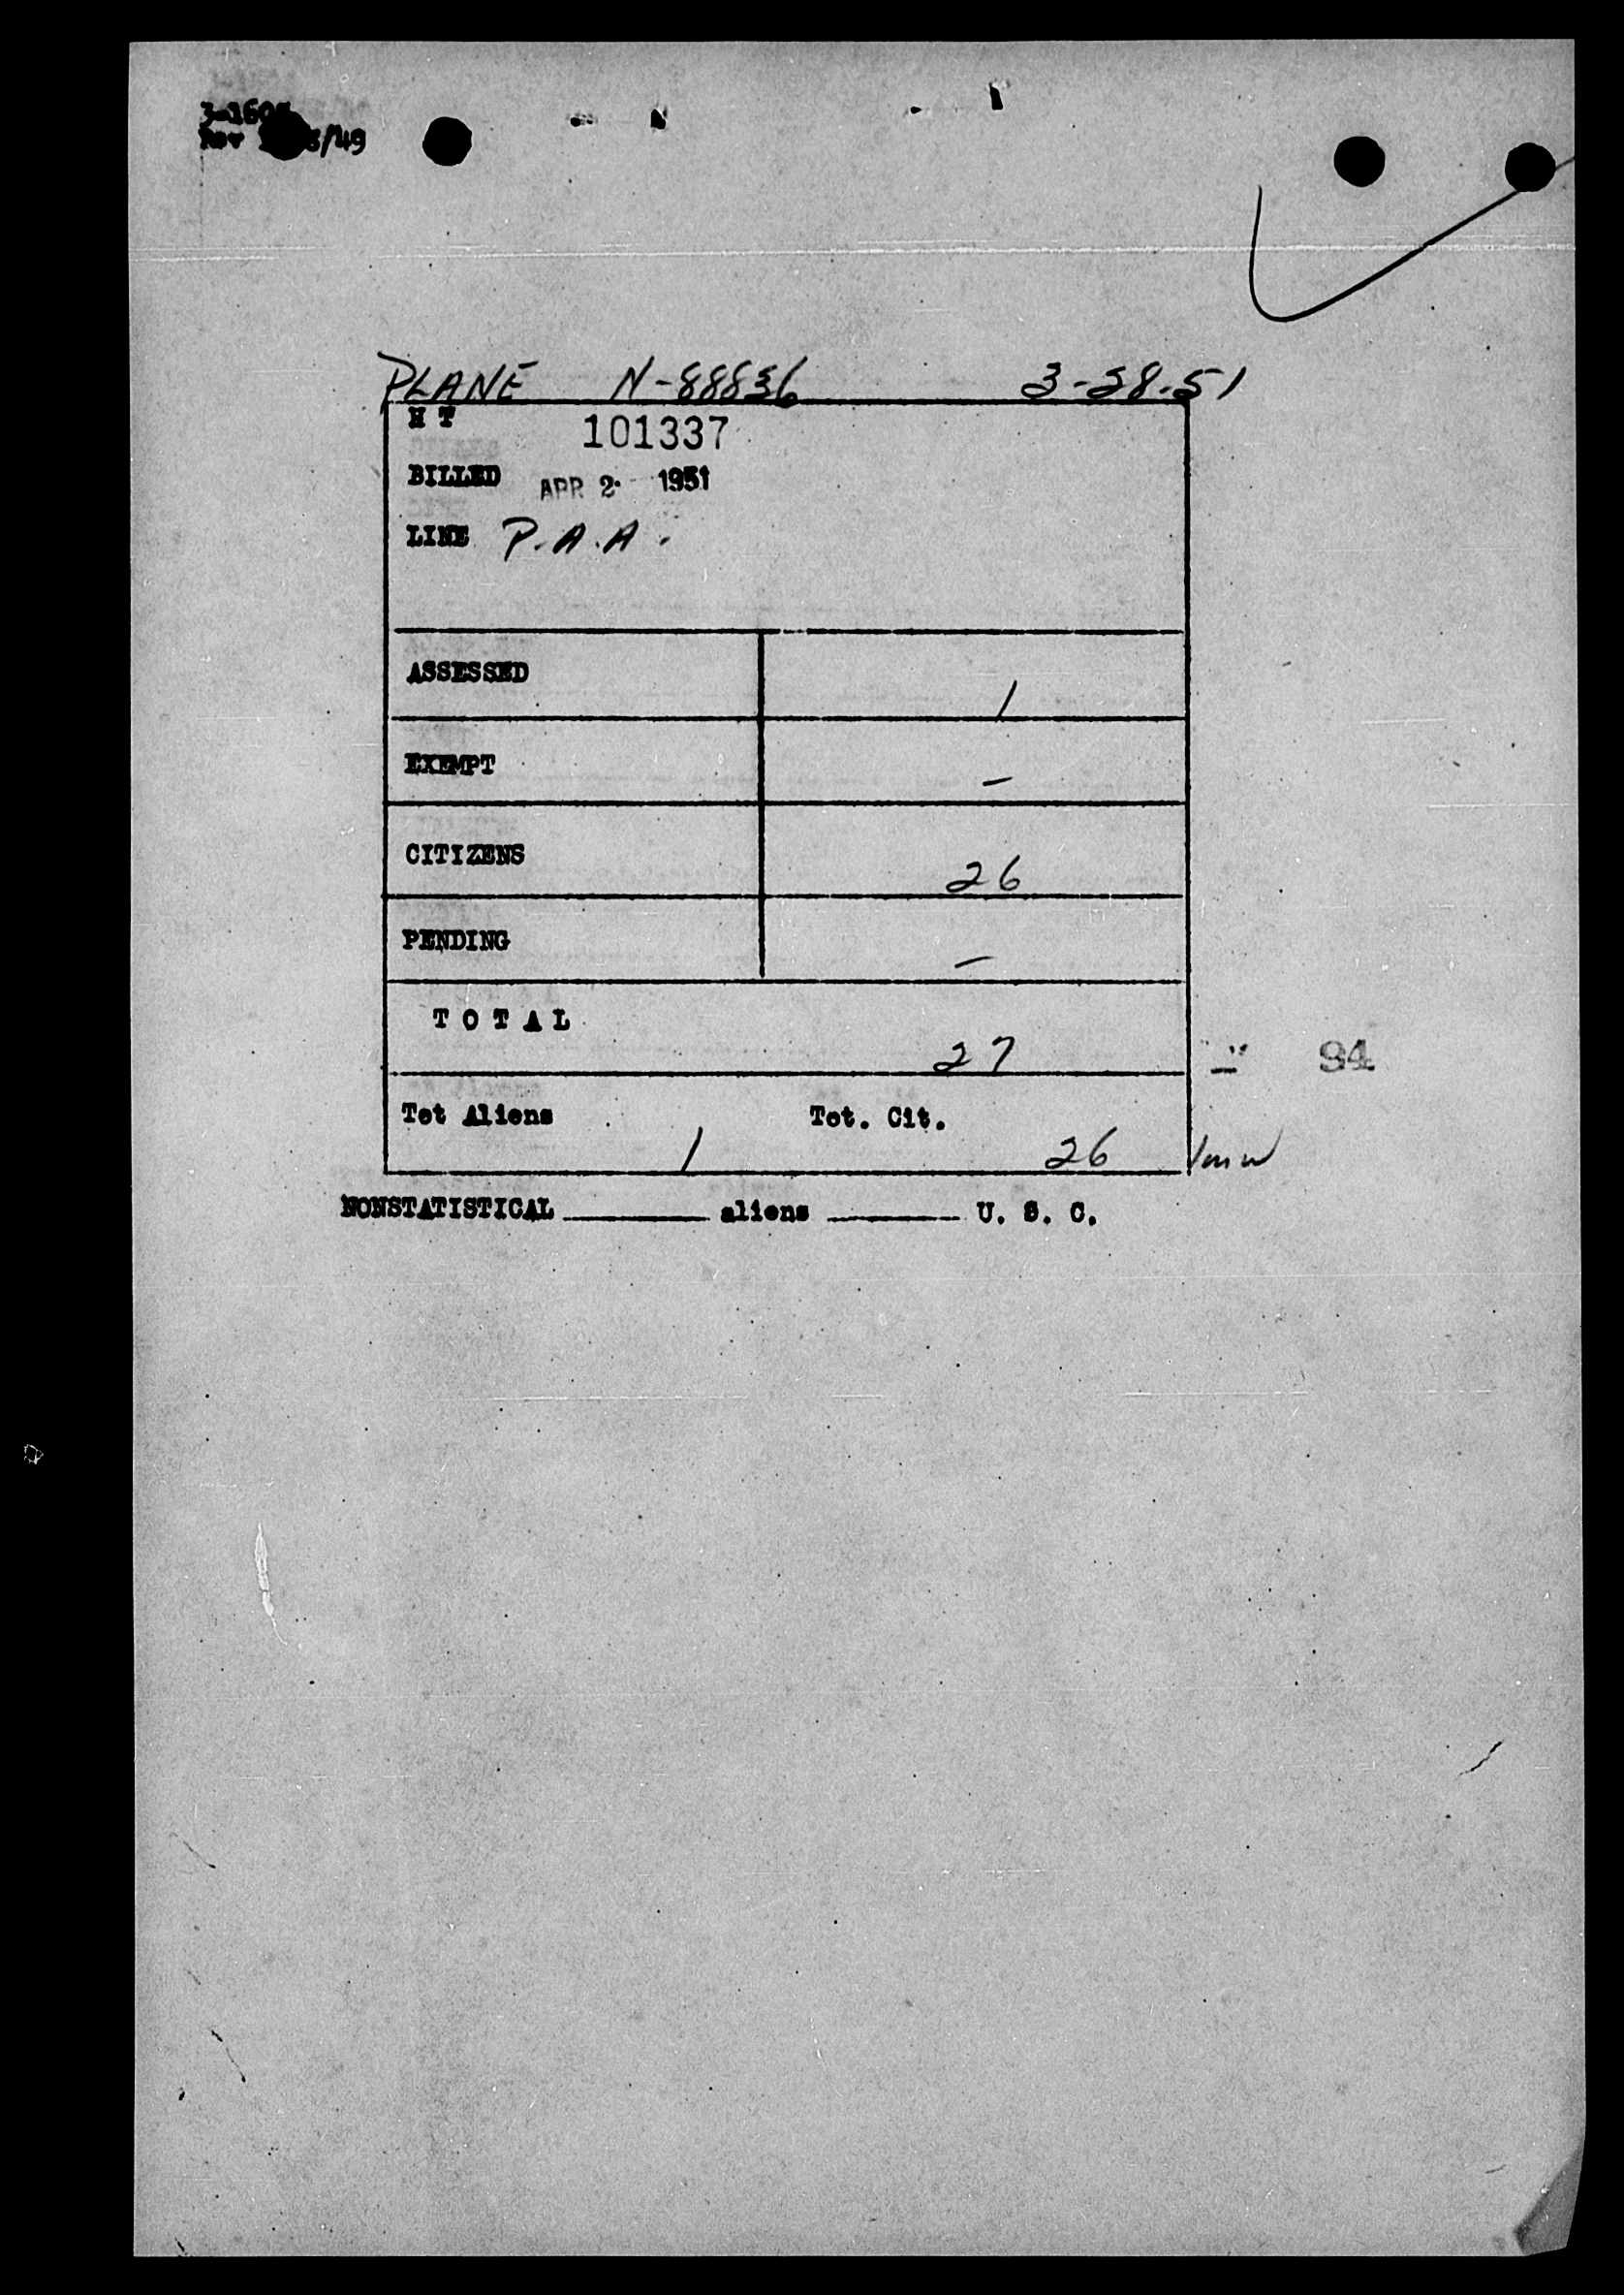 PLANE N-88836 3-28-51
H T 101337
BILLED APR 2 1951
LINE P.A.A.
ASSESSED 1
EXEMPT –
CITIZENS 26
PENDING –
T O T A L 27
94
Tot Aliens 1 Tot. Cit. 26
NONSTATISTICAL ______ aliens ______ U. S. C.